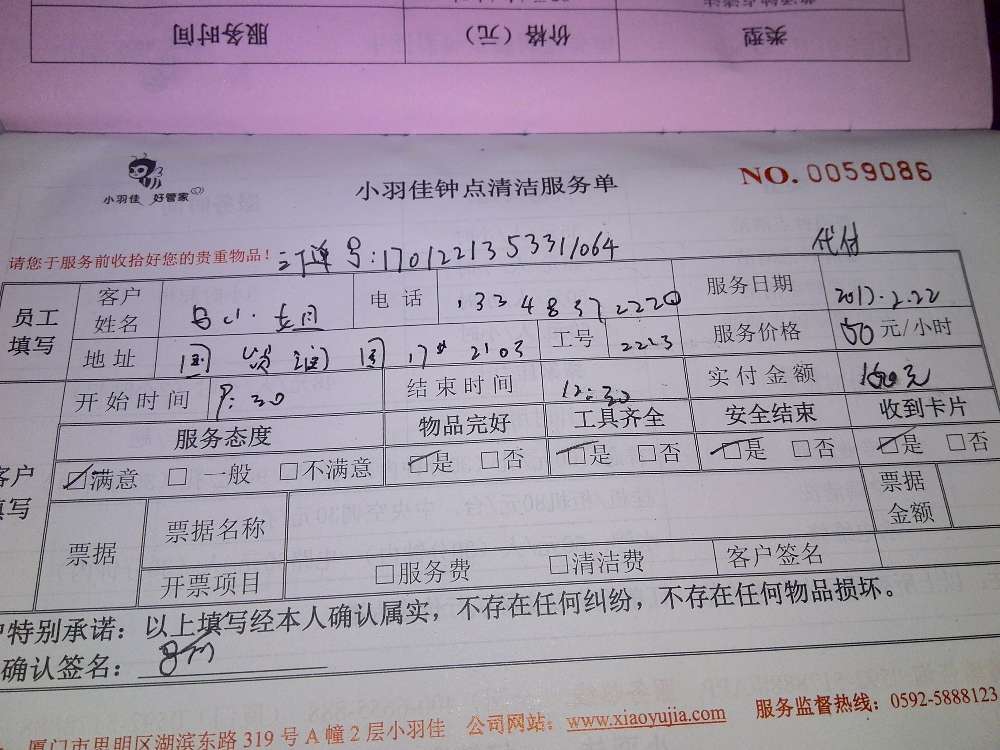 服务时间 价格（元） 类型
小羽佳 好管家
小羽佳钟点清洁服务单
NO. 0059086
请您于服务前收拾好您的贵重物品！ 订单号:1701221353311064 代付
员工填写 客户姓名 电话 13348372220 服务日期 2017.2.22
地址 国贸润园17# 2103 工号 2223 服务价格 50元/小时
开始时间 9:30 结束时间 12:30 实付金额 150元
服务态度 物品完好 工具齐全 安全结束 收到卡片
客户填写 满意 一般 不满意 是 否 是 否 是 否 是 否
票据 票据名称 票据金额
开票项目 服务费 清洁费 客户签名
户特别承诺：以上填写经本人确认属实，不存在任何纠纷，不存在任何物品损坏。
确认签名：
厦门市思明区湖滨东路319号A幢2层小羽佳 公司网站：www.xiaoyujia.com 服务监督热线：0592-5888123